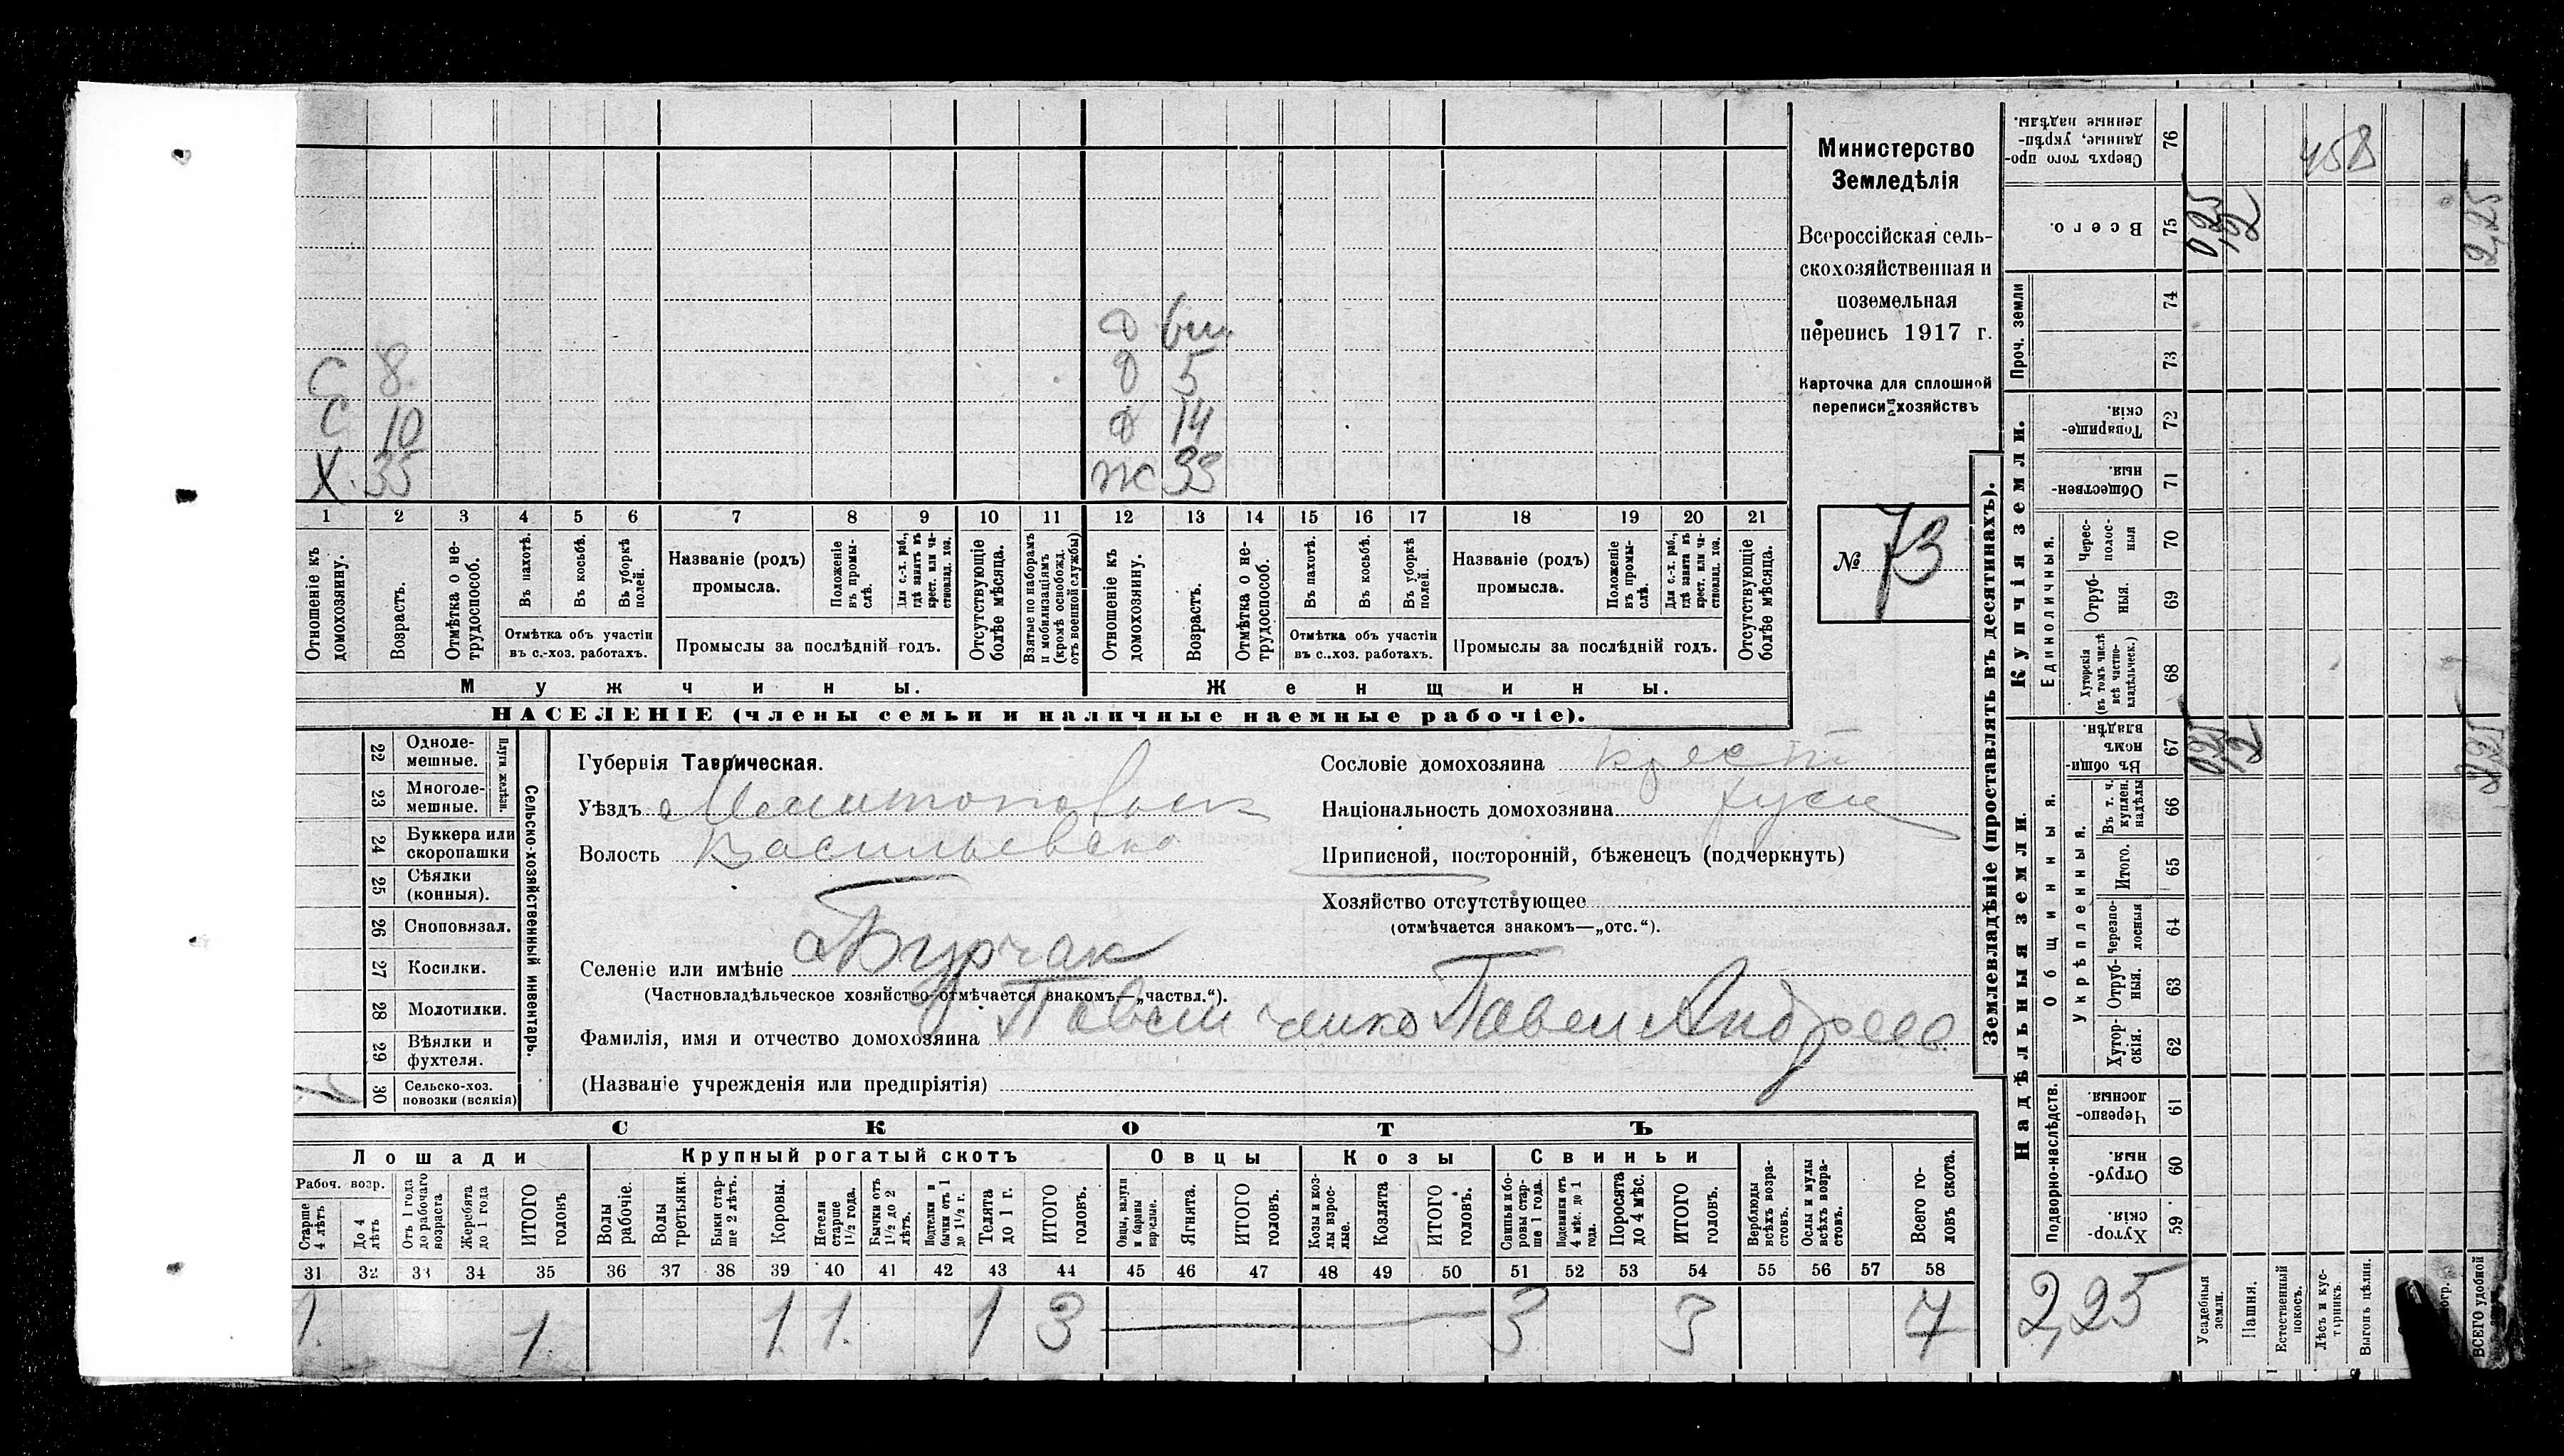 С 8.
С 10
Х. 35
д 6 м.
д 5
д 14
ж 33
1 2 3 4 5 6 7 8 9 10 11 12 13 14 15 16 17 18 19 20 21
Отношеніе къ домохозяину.
Возрастъ.
Отмѣтка о не-трудоспособ.
Въ пахотѣ.
Въ косьбѣ.
Въ уборкѣ полей.
Отмѣтка объ участіи
въ с.-хоз. работахъ.
Названіе (родъ)
промысла.
Положеніе въ промы-слѣ.
Для с.-х. раб., гдѣ занятъ въ крест. или ча-стновлад. хоз.
Промыслы за послѣдній годъ.
Отсутствующіе болѣе мѣсяца.
Взятые по наборамъ и мобилизаціямъ (кромѣ освобожд. отъ военной службы)
Отношеніе къ домохозяину.
Возрастъ.
Отмѣтка о не-трудоспособ.
Въ пахотѣ.
Въ косьбѣ.
Въ уборкѣ полей.
Отмѣтка объ участіи
въ с.-хоз. работахъ.
Названіе (родъ)
промысла.
Положеніе въ промы-слѣ.
Для с.-х. раб., гдѣ занята въ крест. или ча-стновлад. хоз.
Промыслы за послѣдній годъ.
Отсутствующіе болѣе мѣсяца.
Мужчины.
Женщины.
НАСЕЛЕНІЕ (члены семьи и наличные наемные рабочіе).
Министерство
Земледѣлія
Всероссійская сель-
скохозяйственная и
поземельная
перепись 1917 г.
Карточка для сплошной
переписи хозяйствъ
№ 73
22 Одноле-мешные.
23 Многоле-мешные.
Плуги желѣзн.
24 Буккера или скоропашки
25 Сѣялки (конныя).
26 Сноповязал.
27 Косилки.
28 Молотилки.
29 Вѣялки и фухтеля.
30 Сельско-хоз. повозки (всякія)
1
Сельско-хозяйственный инвентарь.
Губернія Таврическая.
Уѣздъ Мелитопольск
Волость Васильевско
Селеніе или имѣніе Бурчак
(Частновладѣльческое хозяйство отмѣчается знакомъ—„частвл.“).
Фамилія, имя и отчество домохозяина Павел Андреев.
(Названіе учрежденія или предпріятія)
Сословіе домохозяина крест
Національность домохозяина русск
Приписной, посторонній, бѣженецъ (подчеркнуть)
Хозяйство отсутствующее
(отмѣчается знакомъ—„отс.“).
СКОТЪ
Лошади
Крупный рогатый скотъ
Овцы
Козы
Свиньи
Рабоч. возр.
Старше 4 лѣтъ
До 4 лѣтъ
Отъ 1 года до рабочаго возраста
Жеребята до 1 года
ИТОГО головъ
Волы рабочіе.
Волы третьяки.
Быки стар-ше 2 лѣтъ.
Коровы.
Нетели старше 1½ года.
Бычки отъ 1½ до 2 лѣтъ.
Подтелки и бычки отъ 1 до 1½ г.
Телята до 1 г.
ИТОГО головъ.
Овцы, валухи и бараны взрослые.
Ягнята.
ИТОГО головъ.
Козы и коз-лы взрос-лые.
Козлята
ИТОГО головъ.
Свиньи и бо-ровы стар-ше 1 года.
Подсвинки отъ 4 мѣс. до 1 года.
Поросята до 4 мѣс.
ИТОГО головъ.
Верблюды всѣхъ возра-стовъ.
Ослы и мулы всѣхъ возра-стовъ.
Всего го-ловъ скота.
31 32 33 34 35 36 37 38 39 40 41 42 43 44 45 46 47 48 49 50 51 52 53 54 55 56 57 58
1. 1. 1. 1. 1 3 3 3 7
Землевладѣніе (проставлять въ десятинахъ).
Надѣльныя земли.
Купчія земли.
Проч. земли
Подворно-наслѣдств.
Общинныя.
Укрѣпленныя.
Единоличныя.
Хутор-скія. 59
Отруб-ныя. 60
Черезпо-лосныя. 61
Хутор-скія. 62
Отруб-ныя. 63
Черезпо-лосныя 64
Итого. 65
Въ т. ч. куплен. надѣлы 66
Въ общи-номъ владѣн. 67
Хуторскія (въ томъ числѣ всѣ частно-владѣльческ.) 68
Отруб-ныя. 69
Черес-полос-ныя 70
Обществен-ныя. 71
Товарище-скія. 72
73
74
Всего. 75
Сверхъ того про-данные, укрѣп-ленные надѣлы. 76
0,25
12
2,25
0,25
12
2,25
458
2,25
Усадебныя земли.
Пашня.
Естественный покосъ.
Лѣсъ и кус-тарникъ.
Выгонъ цѣлин.
ВСЕГО удобной